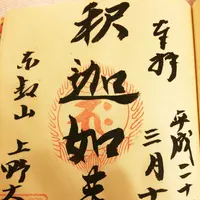 奉拝
平成二十
三月十
釈迦如来
東叡山
上野大